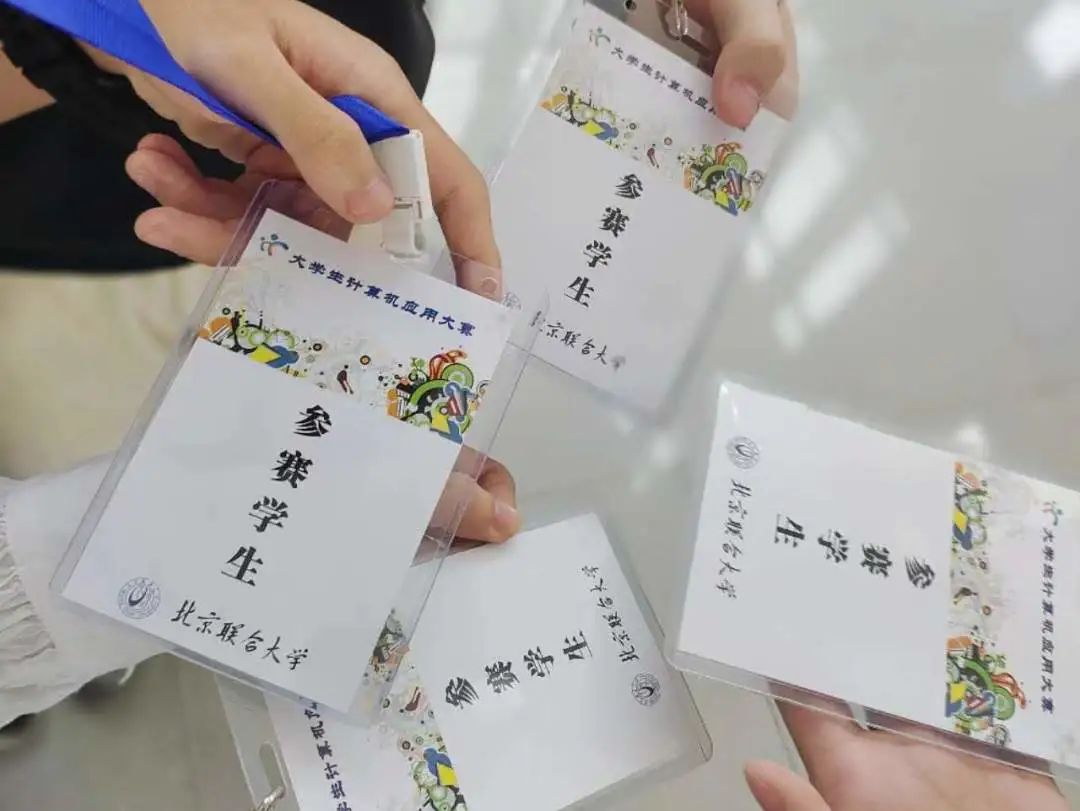 大学生计算机应用大赛
参赛学生
北京联合大学
大学生计算机应用
参赛学生
北京联合大学
大学生计算机应用大赛
参赛学生
北京联合大学
学生计算机
参赛学生
北京联合大学